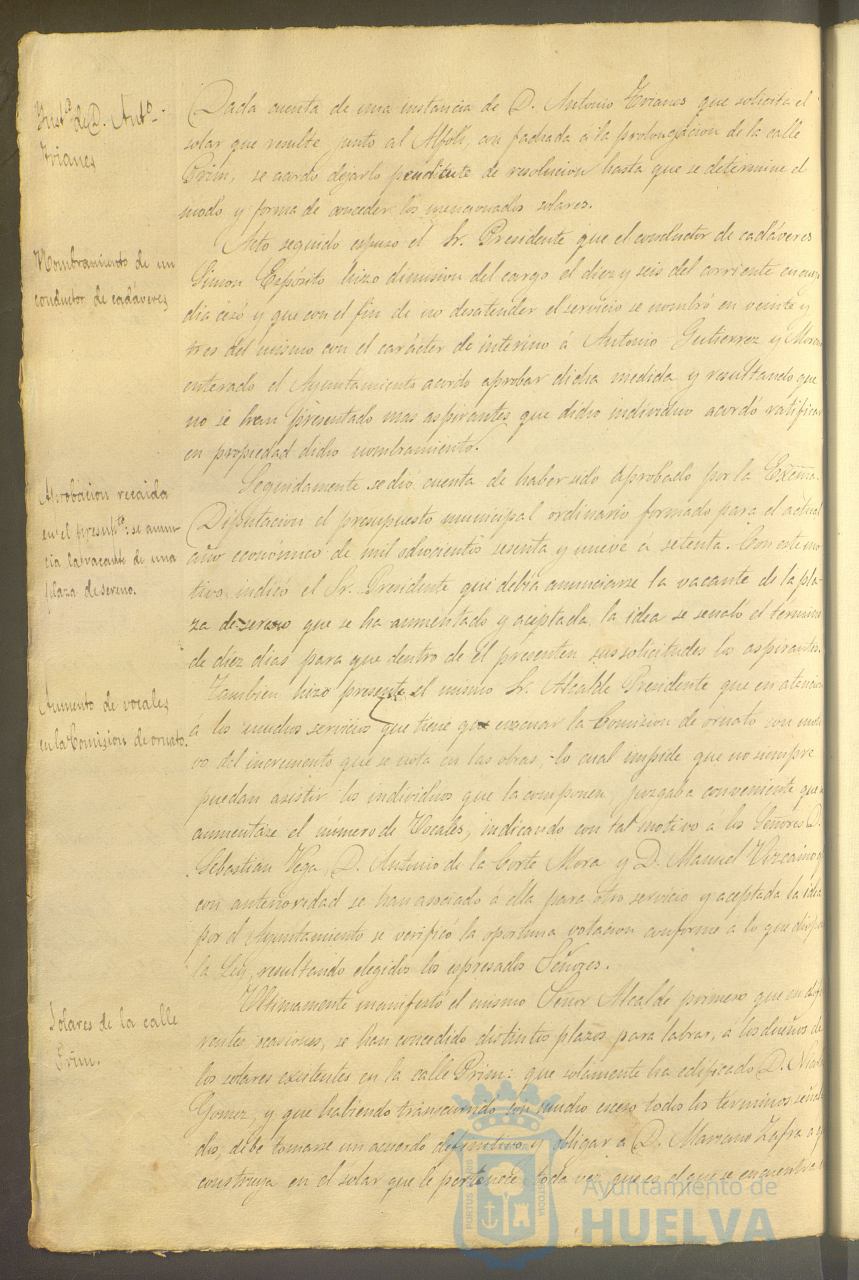 Inst.ª de D. Ant.º
Trianes
Dada cuenta de una instancia de D. Antonio Trianes que solicita el
solar que resulte junto al Alfolí, con fachada á la prolongacion de la calle
Prim, se acordo dejarlo pendiente de resolucion hasta que se determine el
modo y forma de conceder los mencionados solares.
Nombramiento de un
conductor de cadáveres
Acto seguido espuso el Sr. Presidente que el conductor de cadáveres
Simon Expósito hizo dimision del cargo el diez y seis del corriente en cuyo
dia cesó y que con el fin de no desatender el servicio se nombró en veinte y
tres del mismo con el carácter de interino á Antonio Gutierrez y
enterado el Ayuntamiento acordo aprobar dicha medida y resultando que
no se han presentado mas aspirantes que dicho individuo acordó ratificar
en propiedad dicho nombramiento.
Aprobacion recaida
en el presup.to: se anun-
cia la vacante de una
plaza de sereno.
Seguidamente se dió cuenta de haber sido aprobado por la Excma.
Diputacion el presupuesto municipal ordinario formado para el actual
año económico de mil ochocientos sesenta y nueve á setenta. Con este mo-
tivo indicó el Sr. Presidente que debia anunciarse la vacante de la pla-
za de sereno que se ha aumentado y aceptada la idea se señaló el termino
de diez dias para que dentro de él presenten sus solicitudes los aspirantes.
Aumento de vocales
en la Comision de ornato.
Tambien hizo presente el mismo Sr. Alcalde Presidente que en atencion
á los muchos servicios que tiene que la Comision de ornato con moti-
vo del incremento que se nota en las obras, lo cual impide que no siempre
puedan asistir los individuos que la componen, juzgaba conveniente que
aumentase el número de Vocales, indicando con tal motivo a los Señores D.
Sebastian Vega, D. Antonio de la Corte Mora y D. Manuel Vizcaino
con anterioridad se han asociado á ella para otro servicio y aceptada la idea
por el Ayuntamiento se verificó la oportuna votacion conforme á lo que
la Ley, resultando elegidos los espresados Señores.
Solares de la calle
Prim.
Ultimamente manifestó el mismo Señor Alcalde primero que en dife-
rentes ocasiones, se han concedido distintos plazos para labrar, a los dueños de
los solares existentes en la calle Prim: que solamente ha edificado D.
Gomez, y que habiendo transcurrido con mucho exceso todos los terminos señala-
dos, debe tomarse un acuerdo definitivo y obligar a D. Mariano Zafra a q
construya en el solar que le pertenece toda vez que en el que se encuentra
Ayuntamiento de
HUELVA